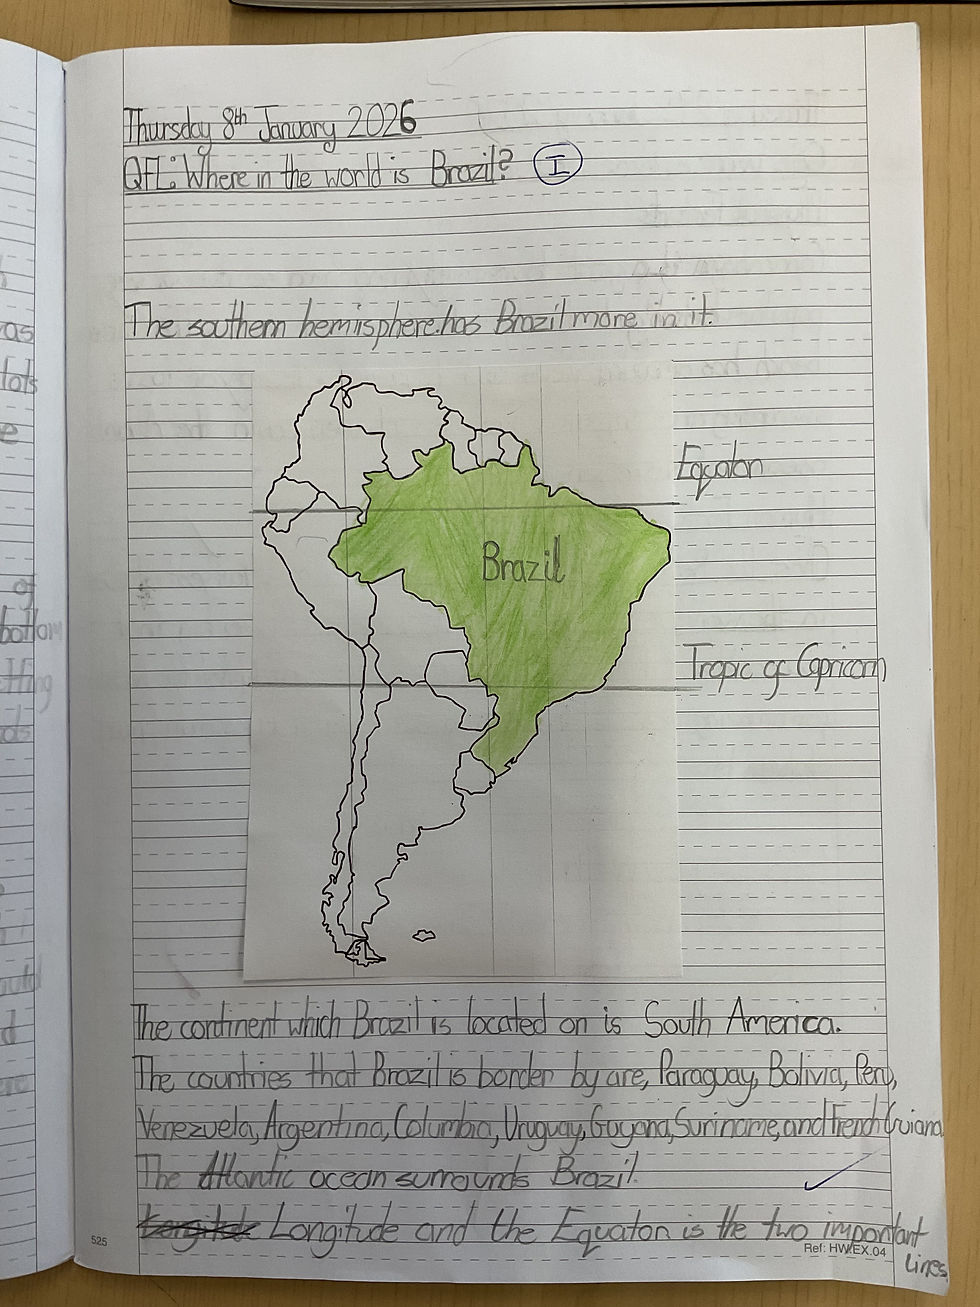 Thursday 8th January 2026
QFL: Where in the world is Brazil? I
The southern hemisphere has Brazil more in it.
Equator
Brazil
Tropic of Capricorn
The continent which Brazil is located on is South America.
The countries that Brazil is border by are, Paraguay, Bolivia, Peru,
Venezuela, Argentina, Columbia, Uruguay, Guyana, Suriname, and French Guiana
The Atlantic ocean surrounds Brazil.
Longitude and the Equator is the two important
lines
525
Ref: HW.EX.04
as
lots
of
bottom